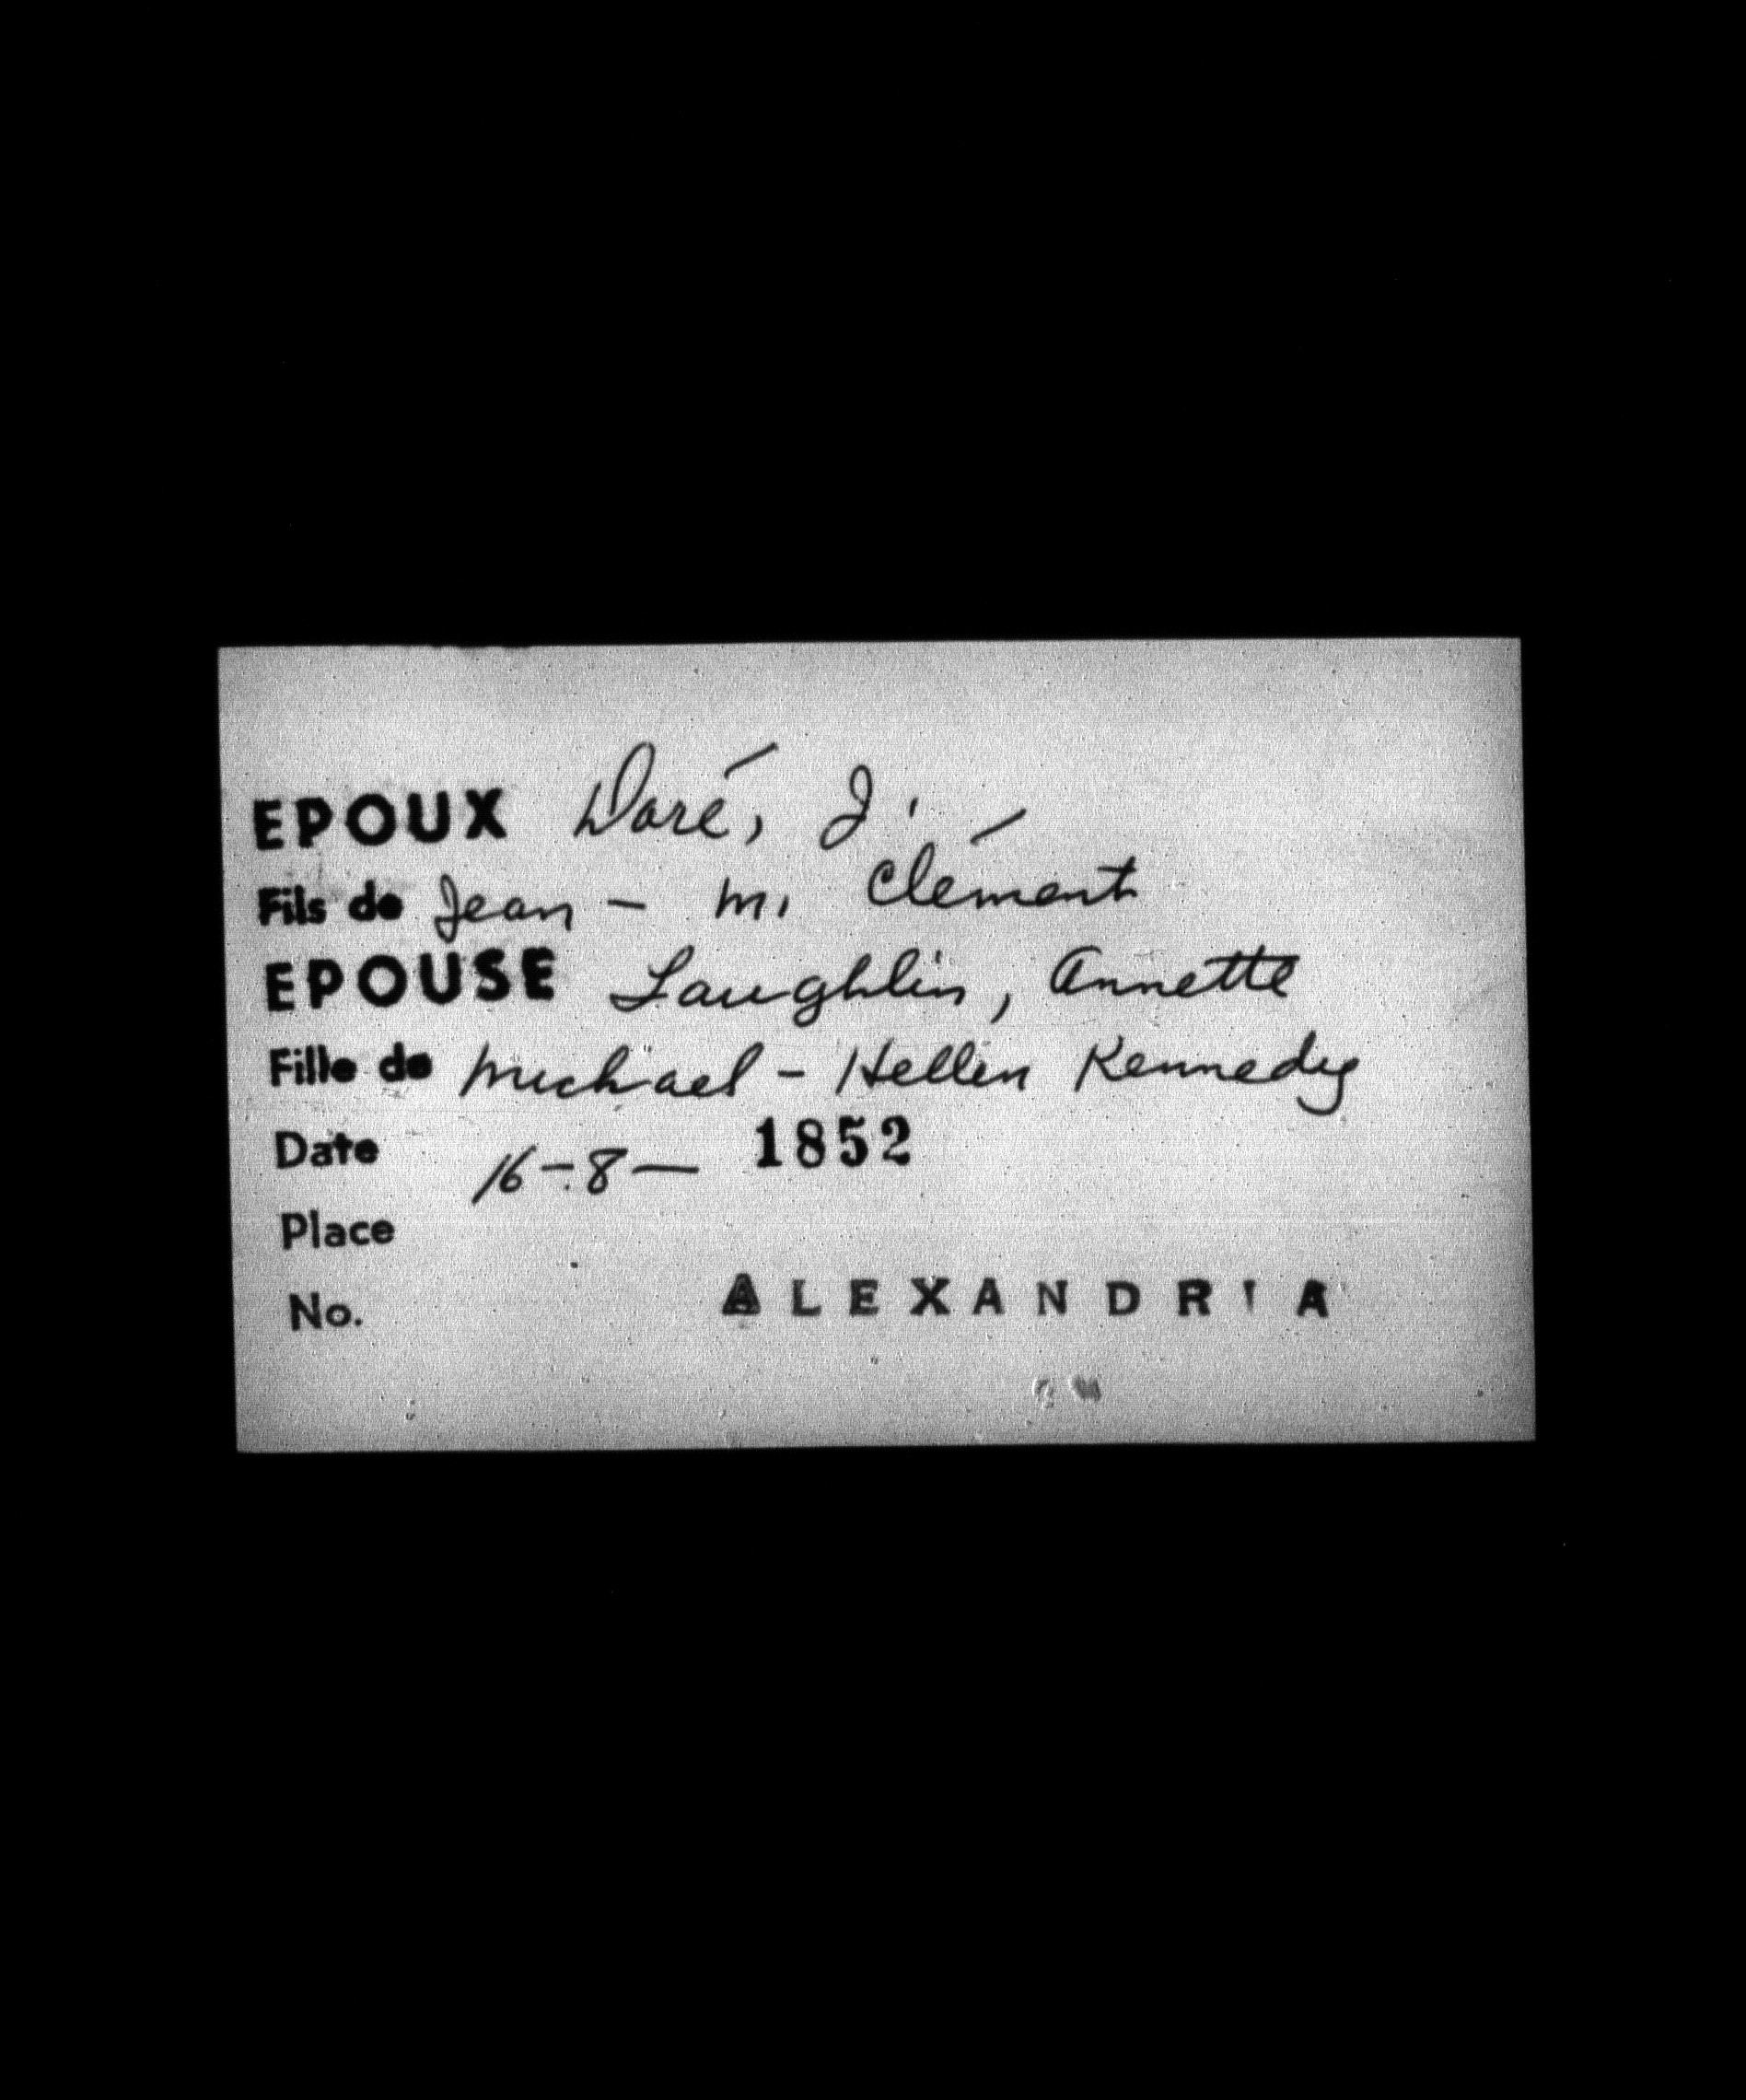 EPOUX Doré, J.
Fils de Jean - M. Clément
EPOUSE Laughlin, Annette
Fille de Michael - Hellen Kennedy
Date 16-8- 1852
Place
No. ALEXANDRIA